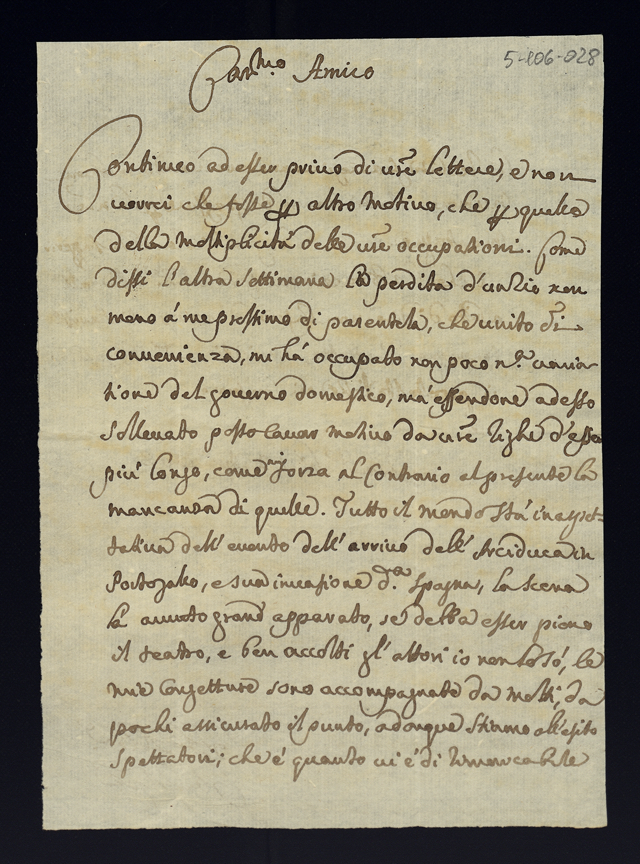 5-106-028
Car.mo Amico
Continuo ad esser privo di vre lettere, e non
vorrei che fosse p altro motivo, che p quello
della moltiplicità delle vre occupationi. Come
dissi l'altra settimana la perdita d'un Zio non
meno à me prossimo di parentela, che unito di
convenienza, mi hà occupato non poco
tione del governo domestico, mà essendone adesso
sollevato posso cavar motivo da vre righe d'esser
più longo, come forza al Contrario al presente la
mancanza di quelle. Tutto il mondo stà in aspet-
tativa dell'evento dell'arrivo dell'Arciduca in
Portogallo, e sua invasione d.a Spagna, la scena
hà avuto grand'apparato, se debba esser pieno
il teatro, e ben accolti gl'attori io non lo sò, le
mie Congetture sono accompagnate da molti, da
pochi assicurato il punto, adonque stiamo all'esito
Spettatori; che è quanto vi è di rimarcabile